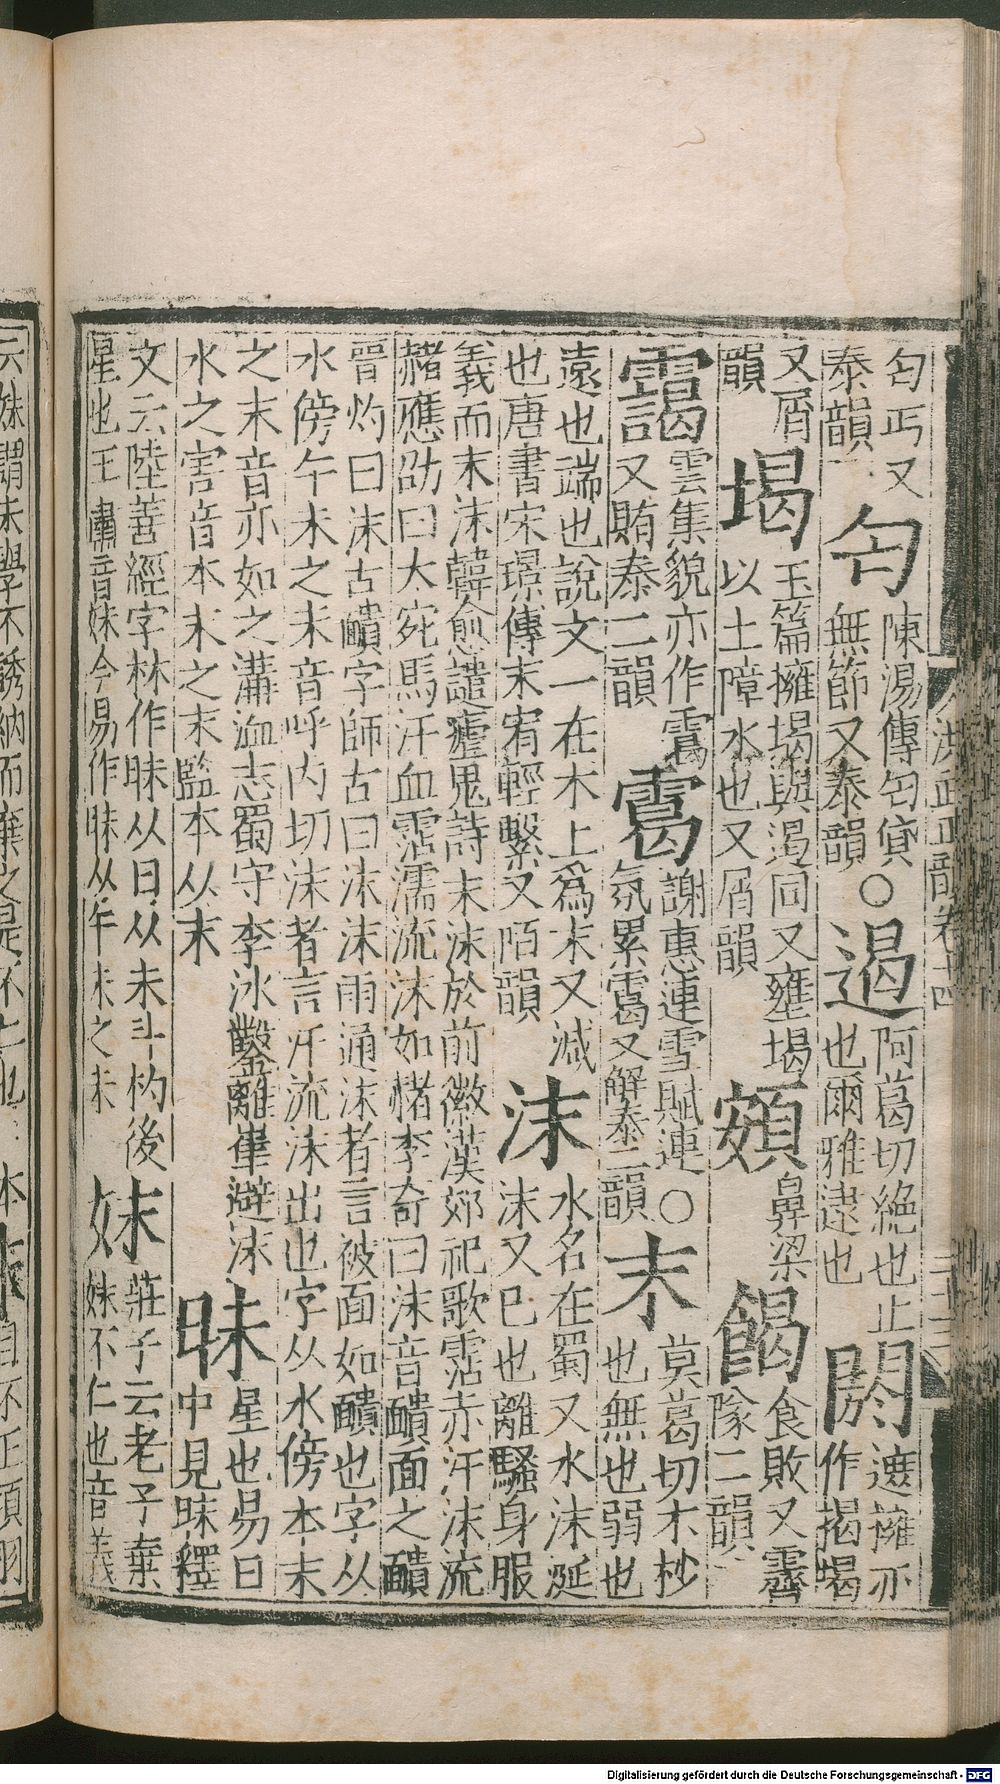 洪武正韻卷十四
匃丐又
泰韻
匄
陳湯傳匄貸
無節又泰韻○
遏
阿葛切絶也止
也爾雅逮也
閼
遮擁亦
作揭堨
又屑
韻
堨
玉篇擁堨與遏同又壅堨
以土障水也又屑韻
頞
鼻梁
餲
食敗又霽
隊二韻
靄
雲集貌亦作
又賄泰二韻
謝惠連雪賦連
氛累又解泰二韻○
末
莫葛切木杪
也無也弱也
遠也端也說文一在木上爲末又減
也唐書宋璟傳末宥輕繫又陌韻
沫
水名在蜀又水沫涎
沫又已也離騷身服
義而末沫韓愈譴瘧鬼詩末沫於前徽漢郊祀歌霑赤汗沫流
赭應劭曰大宛馬汗血霑濡流沫如赭李奇曰沫音靧面之靧
晉灼曰沫古靧字師古曰沫沬兩通沬者言被面如靧也字从
水傍午未之未音呼内切沫者言汗流沫出也字从水傍本末
之末音亦如之溝洫志蜀守李冰鑿離㟭避沫
水之害音本末之末監本从末
昧
星也易曰
中見昧釋
文云陸善經字林作昧从日从末斗杓後
星也王肅音妹今易作昧从午未之未
妺
莊子云老子棄
妹不仁也音義
云妹謂末學不誘納而棄之是不仁也